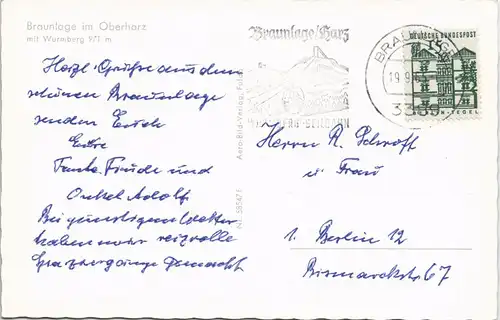 Braunlage im Oberharz
mit Wurmberg 971 m
Herzl. Grüße aus dem
schönen Braunlage
senden Euch
Eure
Tante Friede und
Onkel Adolf
Bei günstigem Wetter
haben wir reizvolle
Spaziergänge gemacht
Aero-Bild-Verlag
Braunlage/Harz
WURMBERG-SEILBAHN
BRAUNLAGE
19.9.
3389
DEUTSCHE BUNDESPOST
15
N-TEGEL
Herrn R. Schroff
u Frau
1. Berlin 12
Bismarckstr 67